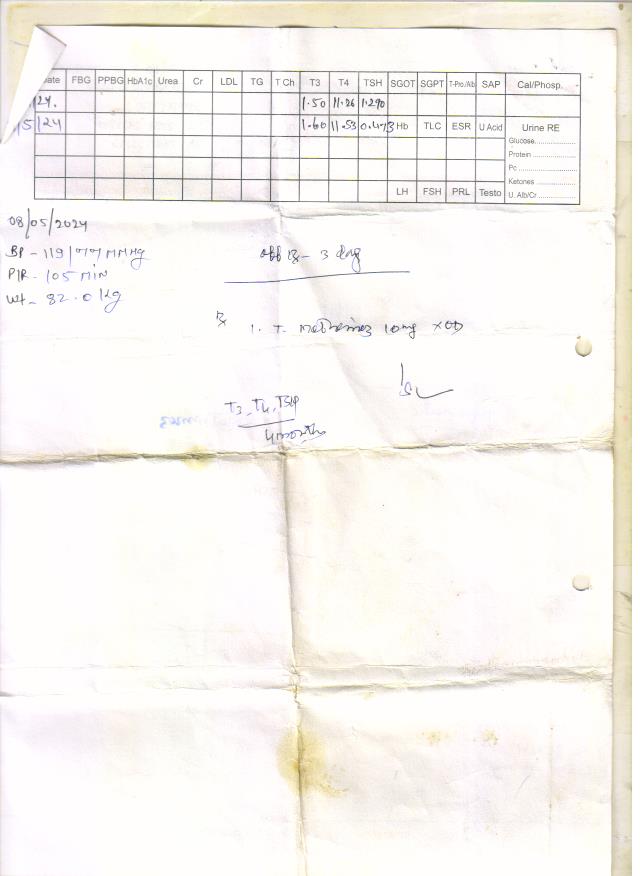 ate FBG PPBG HbA1c Urea Cr LDL TG T Ch T3 T4 TSH SGOT SGPT T-Pro./Alb SAP Cal/Phosp.
/24. 1.50 11.26 1.290
/5/24 1.60 11.53 0.473 Hb TLC ESR U Acid Urine RE
Glucose
Protein
Pc
Ketones
LH FSH PRL Testo U. Alb/Cr
08/05/2024
BP - 119/77 MMHg
P/R - 105 MIN
Wt - 82.0 Kg
off - 3 day
Rx
1. T. 10mg x OD
T3, T4, TSH